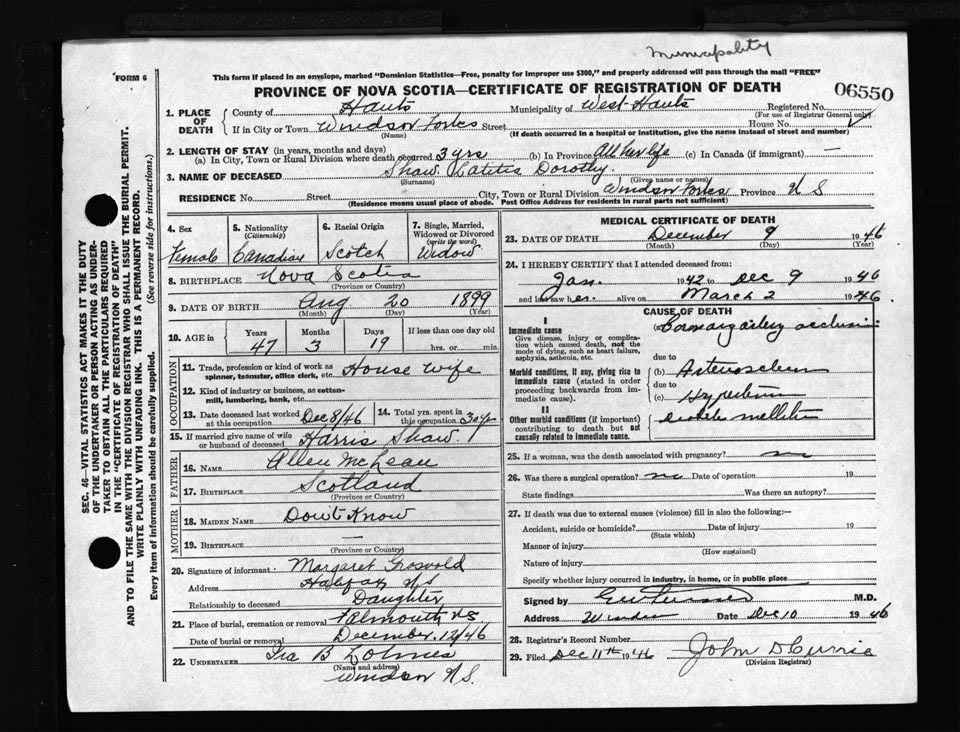 Municipality
FORM 6
This form if placed in an envelope, marked "Dominion Statistics—Free, penalty for improper use $300," and properly addressed will pass through the mail "FREE"
PROVINCE OF NOVA SCOTIA—CERTIFICATE OF REGISTRATION OF DEATH
06550
1. PLACE OF DEATH
County of Hants Municipality of West Hants Registered No.
(For use of Registrar General only)
If in City or Town Windsor Forks Street House No.
(Name) (If death occurred in a hospital or institution, give the name instead of street and number)
2. LENGTH OF STAY (in years, months and days)
(a) In City, Town or Rural Division where death occurred 3 yrs (b) In Province All her life (c) In Canada (if immigrant) —
3. NAME OF DECEASED Shaw Latitia Dorothy
(Surname) (Given name or names)
RESIDENCE No. Street City, Town or Rural Division Windsor Forks Province N S
(Residence means usual place of abode. Post Office Address for residents in rural parts not sufficient)
SEC. 46—VITAL STATISTICS ACT MAKES IT THE DUTY
OF THE UNDERTAKER OR PERSON ACTING AS UNDER-
TAKER TO OBTAIN ALL THE PARTICULARS REQUIRED
IN THE "CERTIFICATE OF REGISTRATION OF DEATH"
AND TO FILE THE SAME WITH THE DIVISION REGISTRAR WHO SHALL ISSUE THE BURIAL PERMIT.
WRITE PLAINLY WITH UNFADING INK. THIS IS A PERMANENT RECORD.
Every item of information should be carefully supplied. (See reverse side for instructions.)
4. Sex
Female
5. Nationality
(Citizenship)
Canadian
6. Racial Origin
Scotch
7. Single, Married,
Widowed or Divorced
(write the word)
Widow
8. BIRTHPLACE Nova Scotia
(Province or Country)
9. DATE OF BIRTH Aug 20 1899
(Month) (Day) (Year)
10. AGE Years Months Days If less than one day old
47 3 19 hrs. or min.
OCCUPATION
11. Trade, profession or kind of work as
spinner, teamster, office clerk, etc. House wife
12. Kind of industry or business, as cotton-
mill, lumbering, bank, etc.
13. Date deceased last worked
at this occupation Dec 8/46
14. Total yrs. spent in
this occupation 30 yrs
15. If married give name of wife
or husband of deceased Harris Shaw
FATHER
16. NAME Allen McLean
17. BIRTHPLACE Scotland
(Province or Country)
MOTHER
18. MAIDEN NAME Don't Know
19. BIRTHPLACE —
(Province or Country)
20. Signature of informant: Margaret
Address Halifax N S
Relationship to deceased Daughter
21. Place of burial, cremation or removal Falmouth N S
Date of burial or removal December 12/46
22. UNDERTAKER Ira B
(Name and address)
Windsor N S.
MEDICAL CERTIFICATE OF DEATH
23. DATE OF DEATH December 9 1946
(Month) (Day) (Year)
24. I HEREBY CERTIFY that I attended deceased from:
Jan. 1942 to Dec 9 1946
and last saw her alive on March 2 1946
CAUSE OF DEATH
I
Immediate cause
Give disease, injury or complica-
tion which caused death, not the
mode of dying, such as heart failure,
asphyxia, asthenia, etc.
(a)
due to
Morbid conditions, if any, giving rise to
immediate cause (stated in order
proceeding backwards from im-
mediate cause).
(b)
due to
(c)
II
Other morbid conditions (if important)
contributing to death but not
causally related to immediate cause.
25. If a woman, was the death associated with pregnancy? no
26. Was there a surgical operation? no Date of operation 19
State findings Was there an autopsy?
27. If death was due to external causes (violence) fill in also the following:—
Accident, suicide or homicide? Date of injury 19
(State which)
Manner of injury
(How sustained)
Nature of injury
Specify whether injury occurred in industry, in home, or in public place
Signed by M.D.
Address Date Dec 10 1946
28. Registrar's Record Number
29. Filed Dec 11th 1946 John D Currie
(Division Registrar)